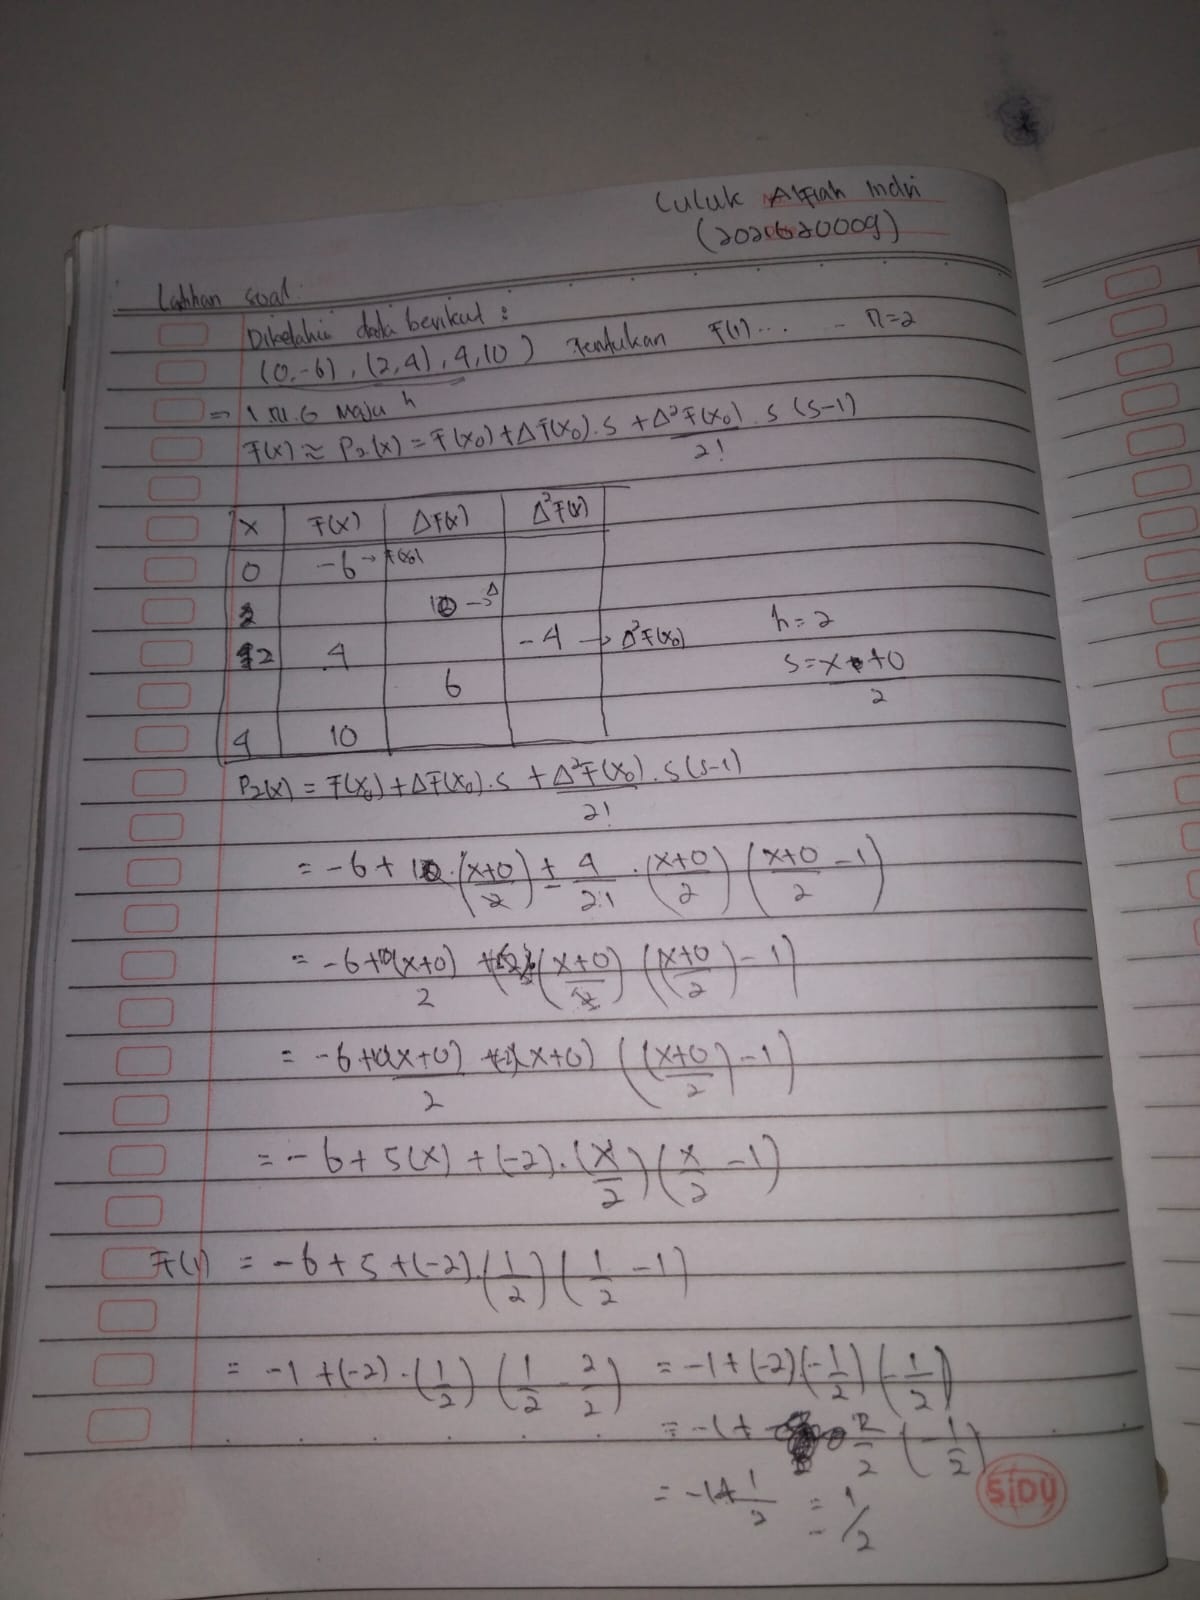 Luluk Alfiah Indri
(2020620009)
Latihan soal.
Diketahui data berikut :
(0,-6), (2,4), 4,10) Tentukan F(1) ... - n=2
⇒ Maju h
F(x) ≈ P₂(x) = F(x₀) + ΔF(x₀).s + Δ²F(x₀)/2! . s (s-1)
x F(x) ΔF(x) Δ²F(x)
0 -6 → F(x₀)
10 → Δ
2 4 -4 → Δ²F(x₀) h=2
6 s = x+0/2
4 10
P₂(x) = F(x₀) + ΔF(x₀).s + Δ²F(x₀)/2! . s(s-1)
= -6 + 10.(x+0/2) + 4/2.1 . (x+0/2) (x+0/2 -1)
= -6+10(x+0)/2 (x+0/2) ((x+0/2) -1)
= -6+10(x+0)/2 (x+0) ((x+0/2) -1)
= -6 + 5(x) + (-2).(x/2)(x/2 -1)
F(1) = -6 + 5 + (-2).(1/2)(1/2 -1)
= -1 + (-2).(1/2) (1/2 - 2/2) = -1 + (-2)(-1/2)(-1/2)
= -1 + 2/2 (-1/2)
= -1+ 1/2 = 1/2
SiDU